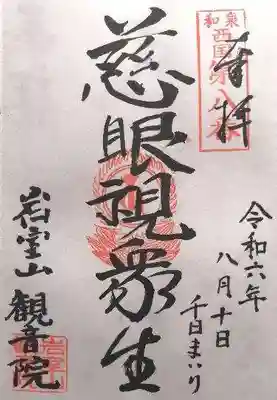 奉拝
和泉
西国第八番
慈眼視衆生
令和六年
八月十日
千日まいり
岩室山
観音院